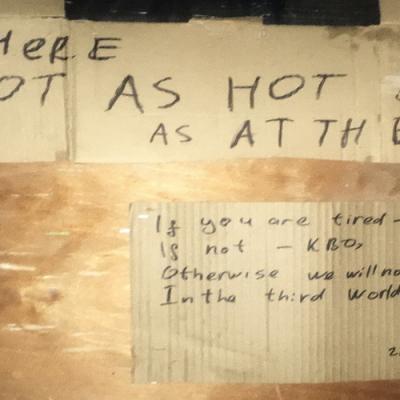 HERE
OT AS HOT
AS AT TH
If you are tired -
If not - KBO,
Otherwise we will no
In the third World